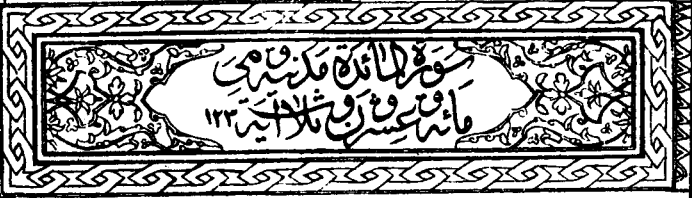 سورة المائدة مدنية وهي
مائة وعشرون وثلاث آية ١٢٣